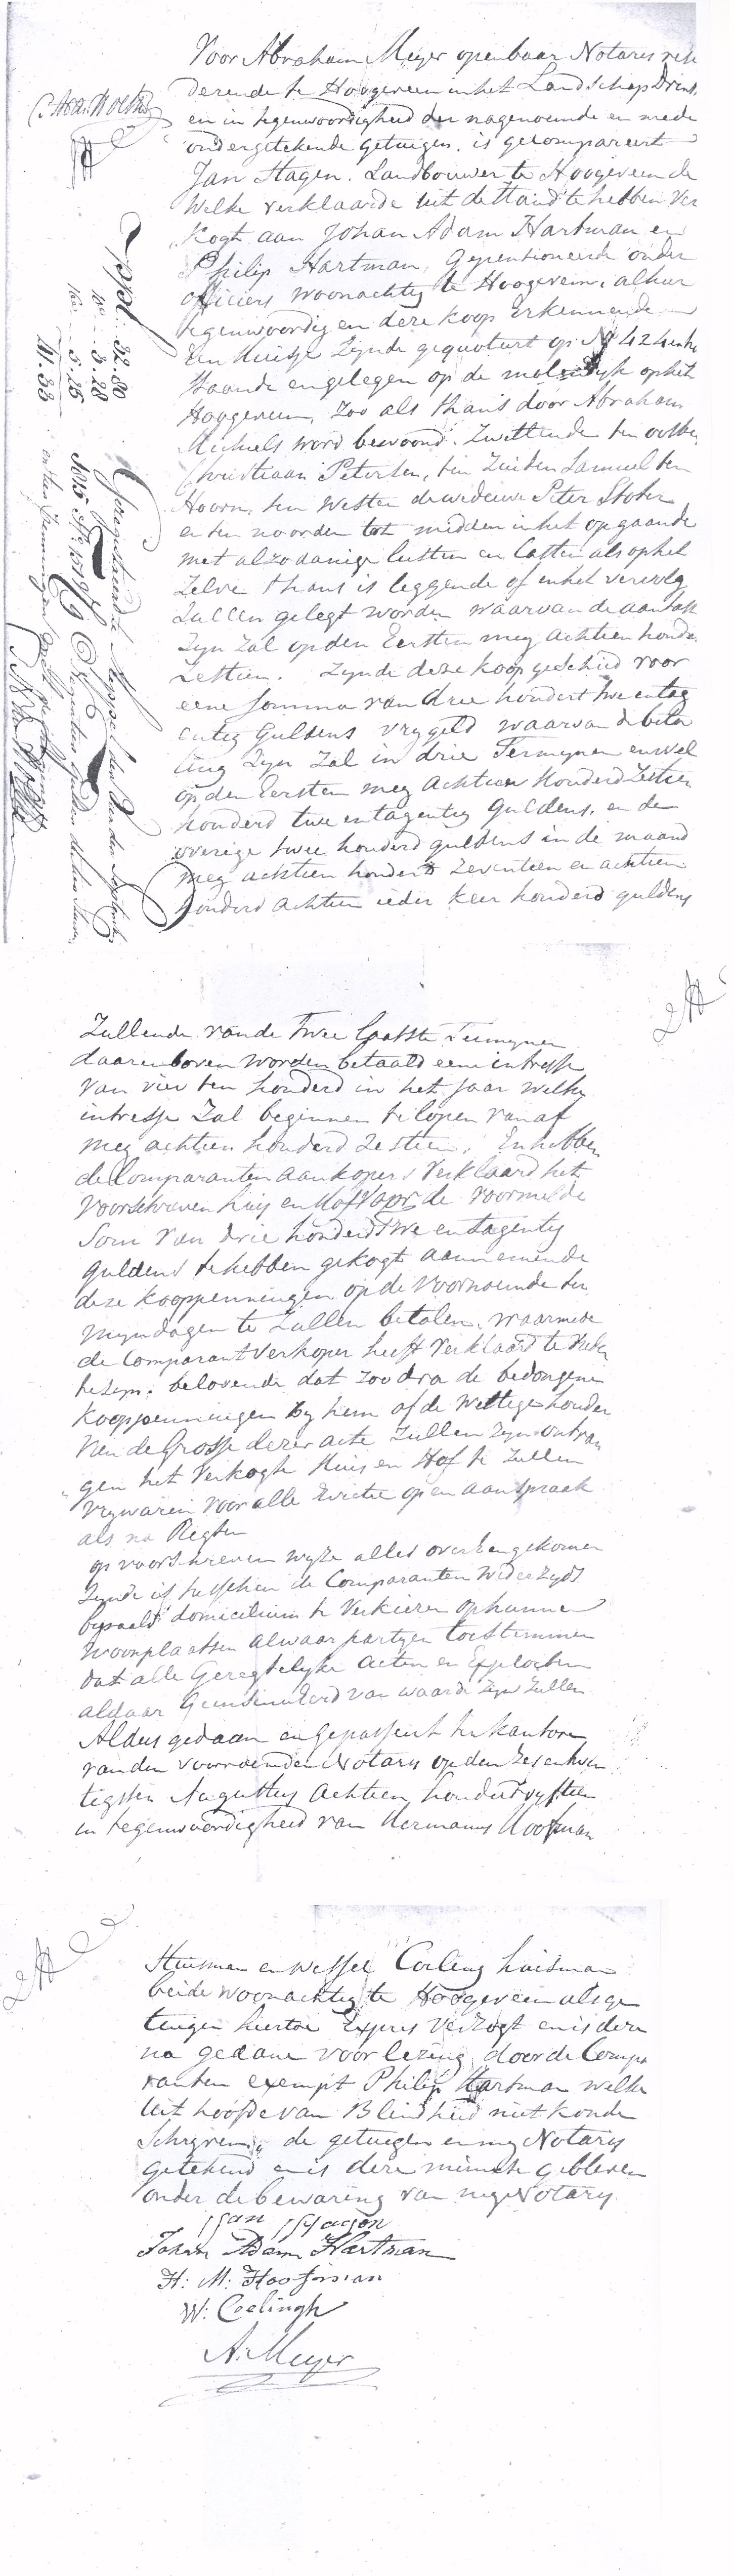 Voor Abraham Meyer openbaar Notaris resi
derende te Hoogeveen in het Landschap Drent
en in tegenwoordigheid der nagenoemde en mede
ondergetekende getuigen, is gecompareert
Jan Hagen. Landbouwer te Hoogeveen de
Welke verklaarde uit de Hand te hebben ver
kogt aan Johan Adam Hartman en
Philip Hartman, Gepensioneerde onder
officiers woonachtig te Hoogeveen, alhier
tegenwoordig en deze koop Erkennende
Een huisje Zynde gequoteert op No 424
staande en gelegen op de molendyk op het
Hoogeveen, Zoo als thans door Abraham
Michiels word bewoond. Zwettende ten oosten
Christiaan Petersen, ten Zuiden Samuel ten
Hoorn, ten Westen de weduwe Peter Stoter
en ten noorden tot midden in het opgaande
met alzodanige lusten en Lasten als op het
Zelve thans is leggende of in het vervolg
Zullen gelegt worden waarvan de aanvaart
Zyn Zal op den Eersten mey Achtien honde
Zestien. Zynde deze koop geschied voor
eene Somma van drie hondert twe entag
entig Guldens vrygeld waarvan de beta
ling Zyn Zal in drie Termynen en wel
op den Eersten mey Achtien Honderd Zestien
honderd twee entagentig guldens, en de
overige twee honderd guldens in de maand
mey achtien honderd Zeventeen en achtien
honderd achtien ieder keer honderd guldens
32.80
3.28
5.25
41.33
Zullende van de Twee laatste Termynen
daarenboven worden betaald eene intresse
van vier ten honderd in het jaar welke
intresse Zal beginnen te lopen van af
mey achtien honderd Zestien. En hebben
de Comparanten aankopers verklaard het
voorschreven huis en Hof voor de voormelde
Som van drie honderd twe entagentig
guldens te hebben gekogt aannemende
deze kooppenningen op de voornoemde ter
myndagen te Zullen betalen, waarmede
de Comparant Verkoper heeft Verklaard te vrede
te zyn. belovende dat Zoodra de bedongene
kooppenningen by hem of de Wettige houder
van de Grosse dezer acte Zullen Zyn ontvan
gen het Verkogte Huis en Hof te Zullen
Vrywaren voor alle Evictie op en aanspraak
als na Regten
op voorschreven wyze alles overeengekomen
Zynde is tusschen de Comparanten wederzyds
bepaald domicilium te Verkiezen op hunne
Woonplaatsen alwaar partyen toestemmen
dat alle Geregtelyke acten en Exploiten
aldaar Geinsinueerd van waarde Zyn Zullen
Aldus gedaan en gepasseert ten kantore
van den voornoemden Notarys op den Zesentwin
tigsten Augustus Achtien hondert vyftien
in tegenwoordigheid van Hermannus Hoofman
Huisman en Wessel Coeling huisman
beide woonachtig te Hoogeveen als ge
tuigen hiertoe Expres verzogt en is deze
na gedane voorlezing door de Compa
ranten exempt Philip Hartman welke
uit hoofde van Blindheid niet konde
Schryven, de getuigen en my Notarys
getekend en is deze minute gebleven
onder de bewaring van my Notarys.
Jan Hagen
Johan Adam Hartman
H: M: Hoofman
W: Coelingh
A: Meyer